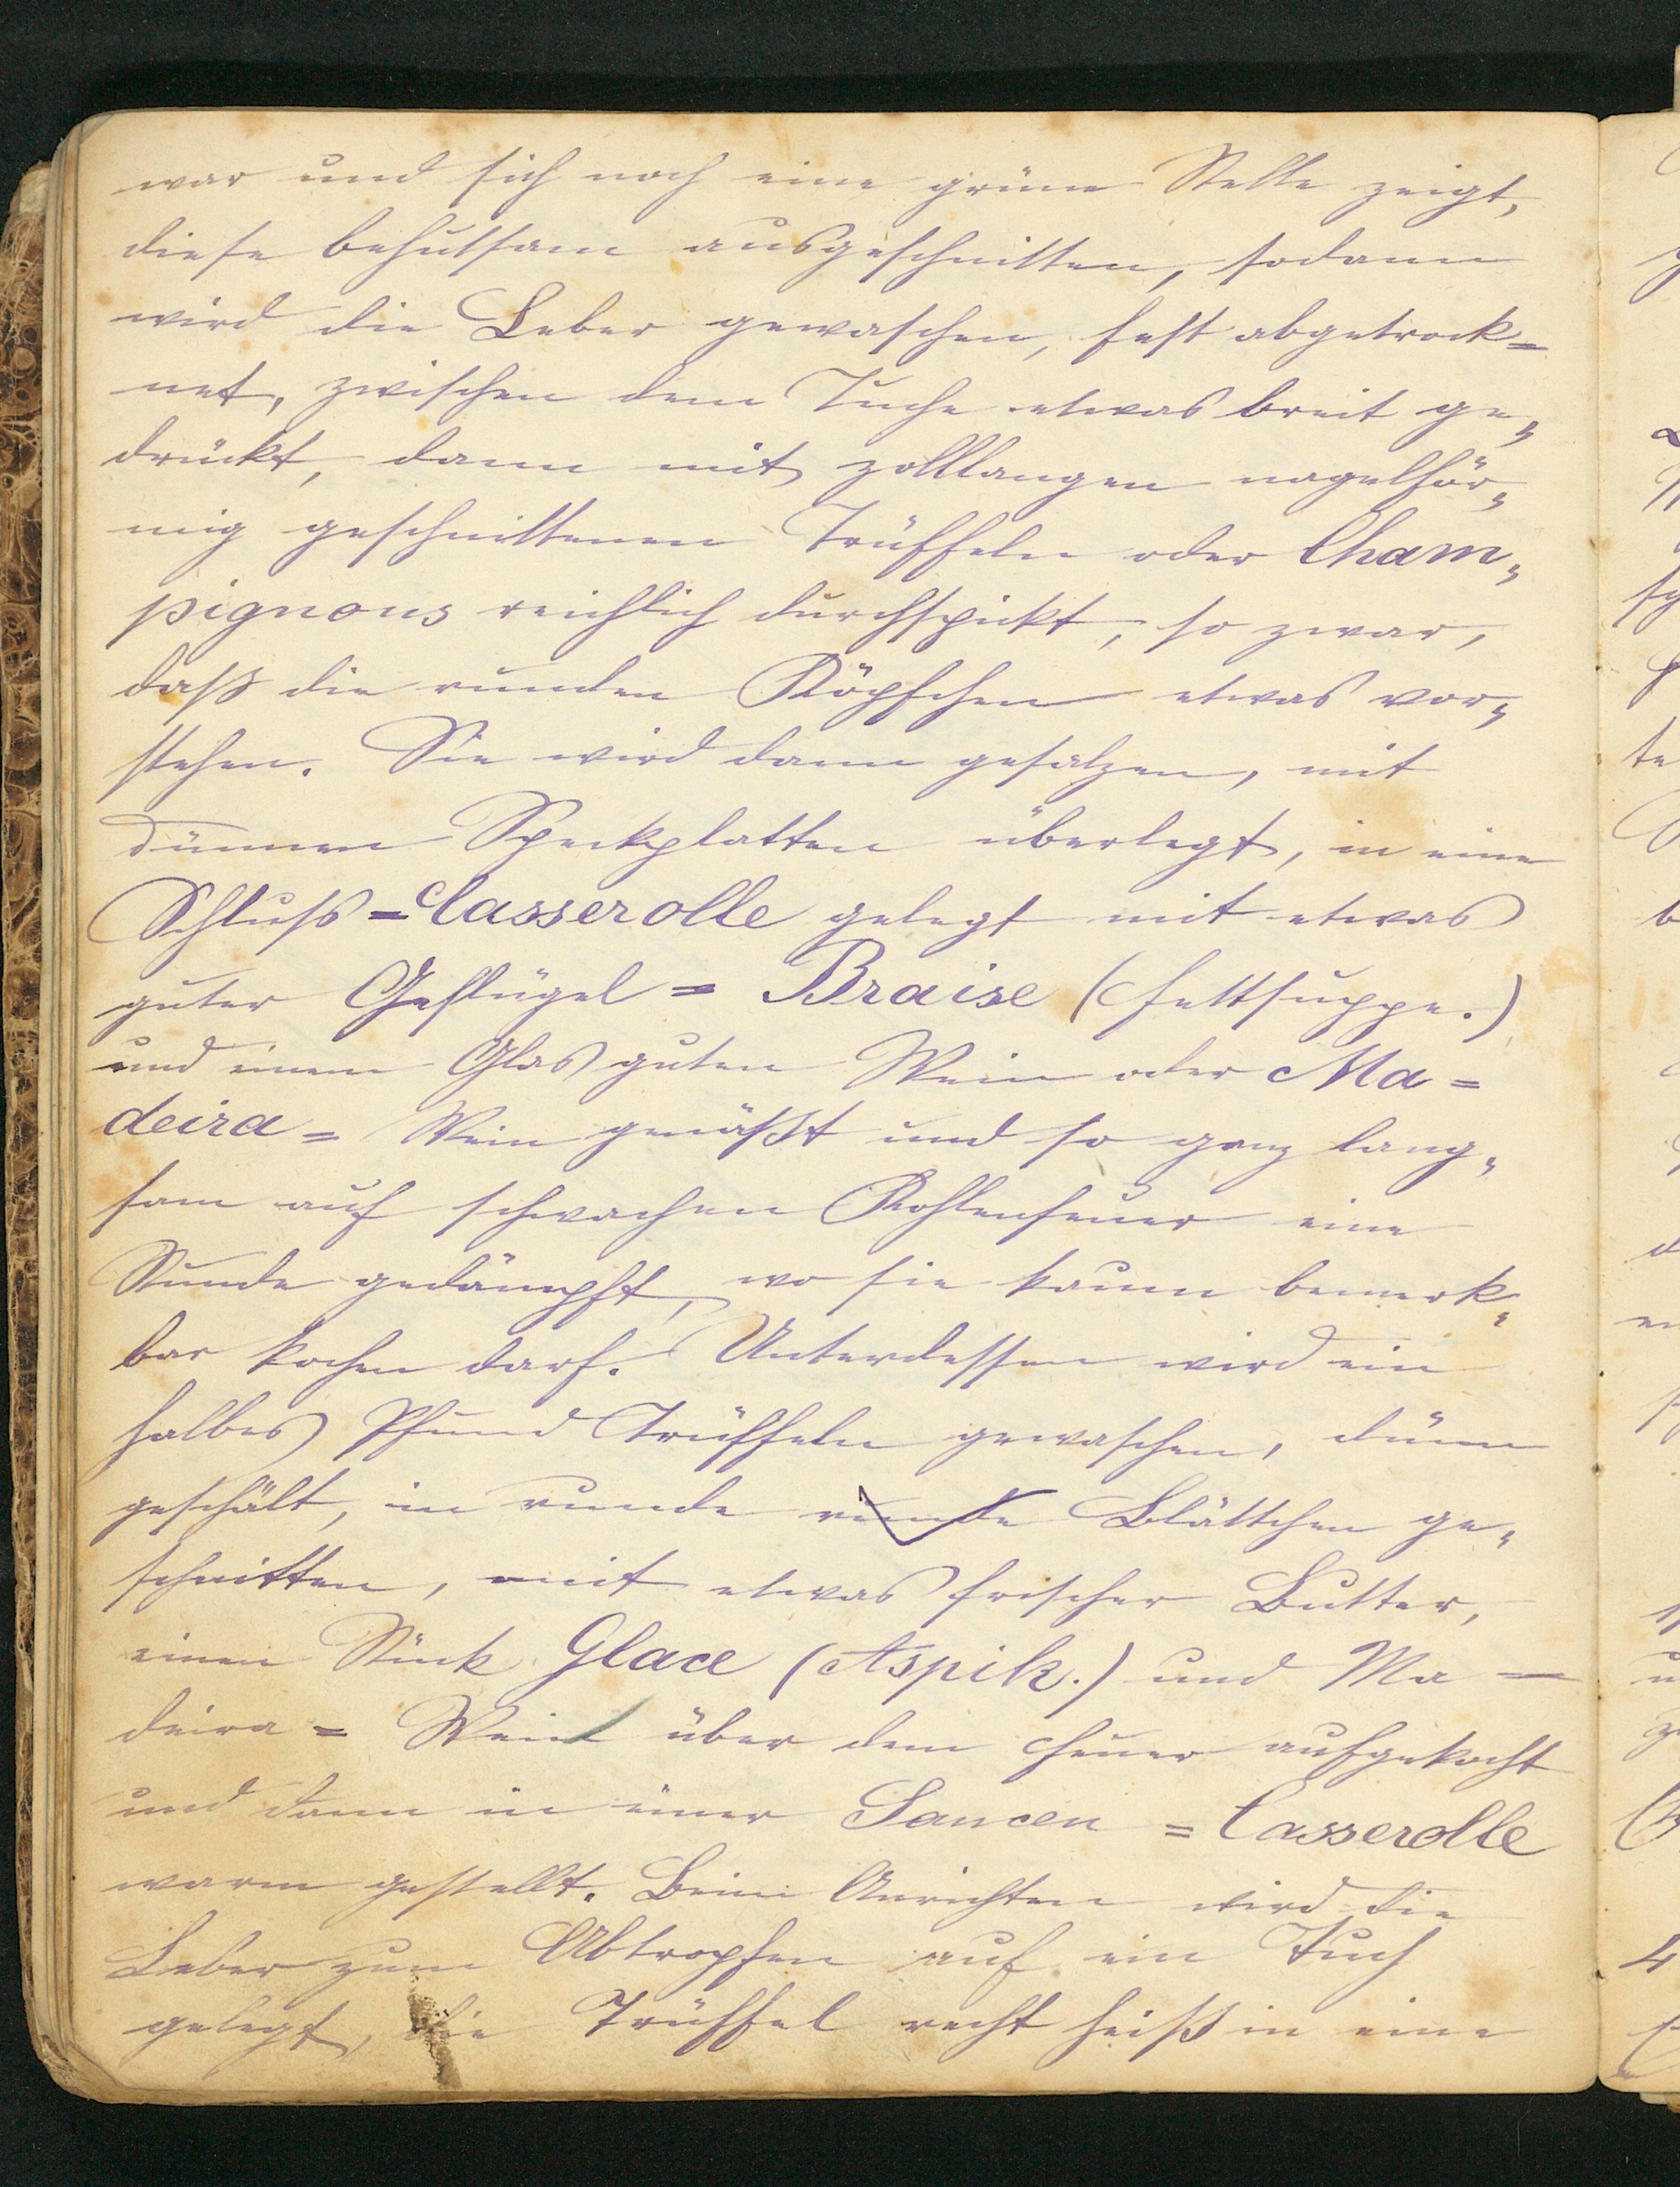 war und sich noch eine grüne Stelle zeigt,
diese behutsam ausgeschnitten, sodann
wird die Leber gewaschen, fest abgetrock=
net, zwischen dem Tuche etwas breit ge=
drückt, dann mit zolllangen nagelför=
mig geschnittenen Trüffeln oder Cham=
pignons reichlich durchspickt, so zwar,
daß die runden Köpfchen etwas vor=
stehen. Sie wird dann gesalzen, mit
dünnen Speckplatten überlegt, in eine
Schluß=Casserolle gelegt mit etwas
guter Geflügel = Braise (Fettsuppe.)
und einem Glas guten Wein oder Ma=
deira = Wein genäßt und so ganz lang=
sam auf schwachen Kohlenfeuer eine
Stunde gedämpft, wo sie kaum bemerk=
bar kochen darf. Unterdessen wird ein
halbes Pfund Trüffeln gewaschen, dünn
geschält, in runde runde Blättchen ge=
schnitten, mit etwas frischer Butter,
einem Stück Glace (Aspik.) und Ma=
deira = Wein über dem Feuer aufgekocht
und dann in einer Saucen = Casserolle
warm gestellt. Beim Anrichten wird die
Leber zum Abtropfen auf ein Tuch
gelegt, die Trüffel recht heiß in eine